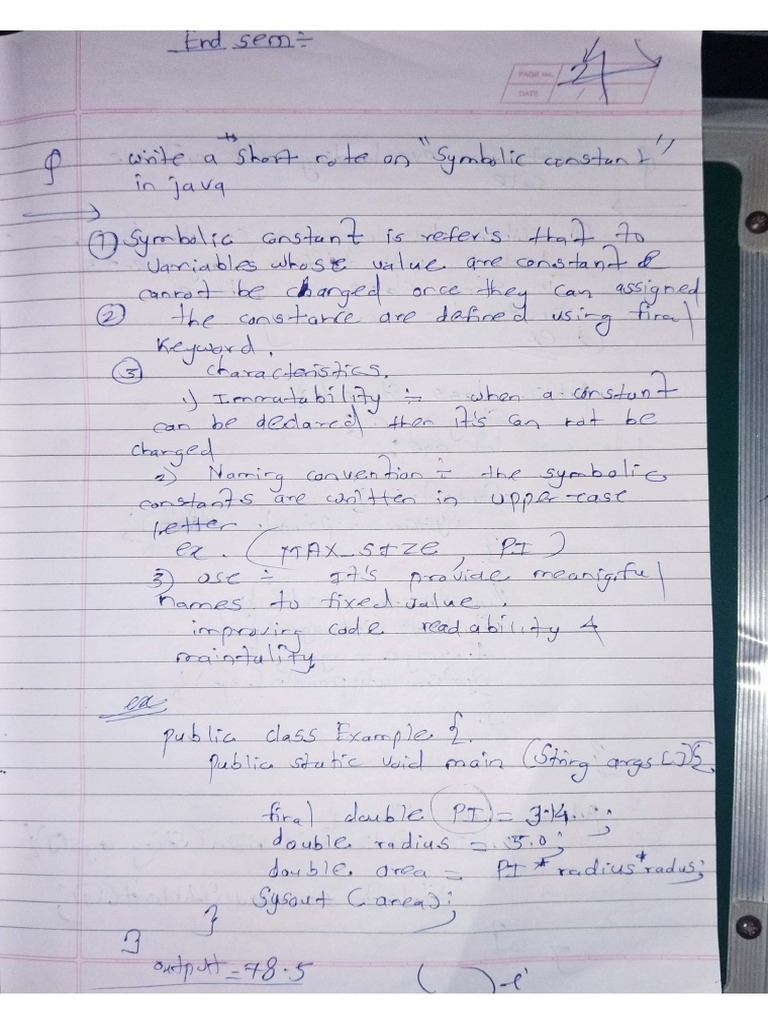 End sem÷
PAGE No.
DATE
24
Q write a "short note on "Symbolic constant"
in java
→
① Symbolic constant is refer's that to
variables whose value are constant &
cannot be changed once they can assigned
② the constance are defined using final
keyword.
③ characteristics.
1) Immutability ÷ when a constant
can be declared then it's can not be
changed
2) Naming convention ÷ the symbolic
constants are written in upper-case
letter.
ex. (MAX_SIZE, PI)
3) use ÷ It's provide meanigful
names to fixed value.
improving code readability &
maintality
ex
public class Example {
public static void main (String args []){
final double PI = 3.14;
double radius = 5.0;
double area = PI * radius * radus;
Sysout (area);
}
}
output = 78.5
( )